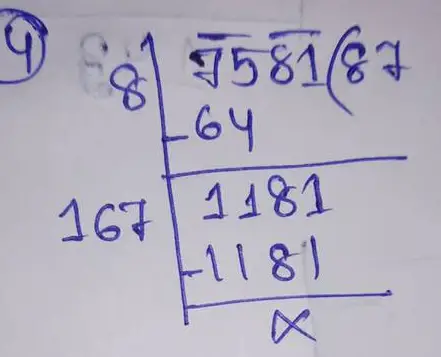 4
8 | 7581(87
-64
167 | 1181
-1181
×